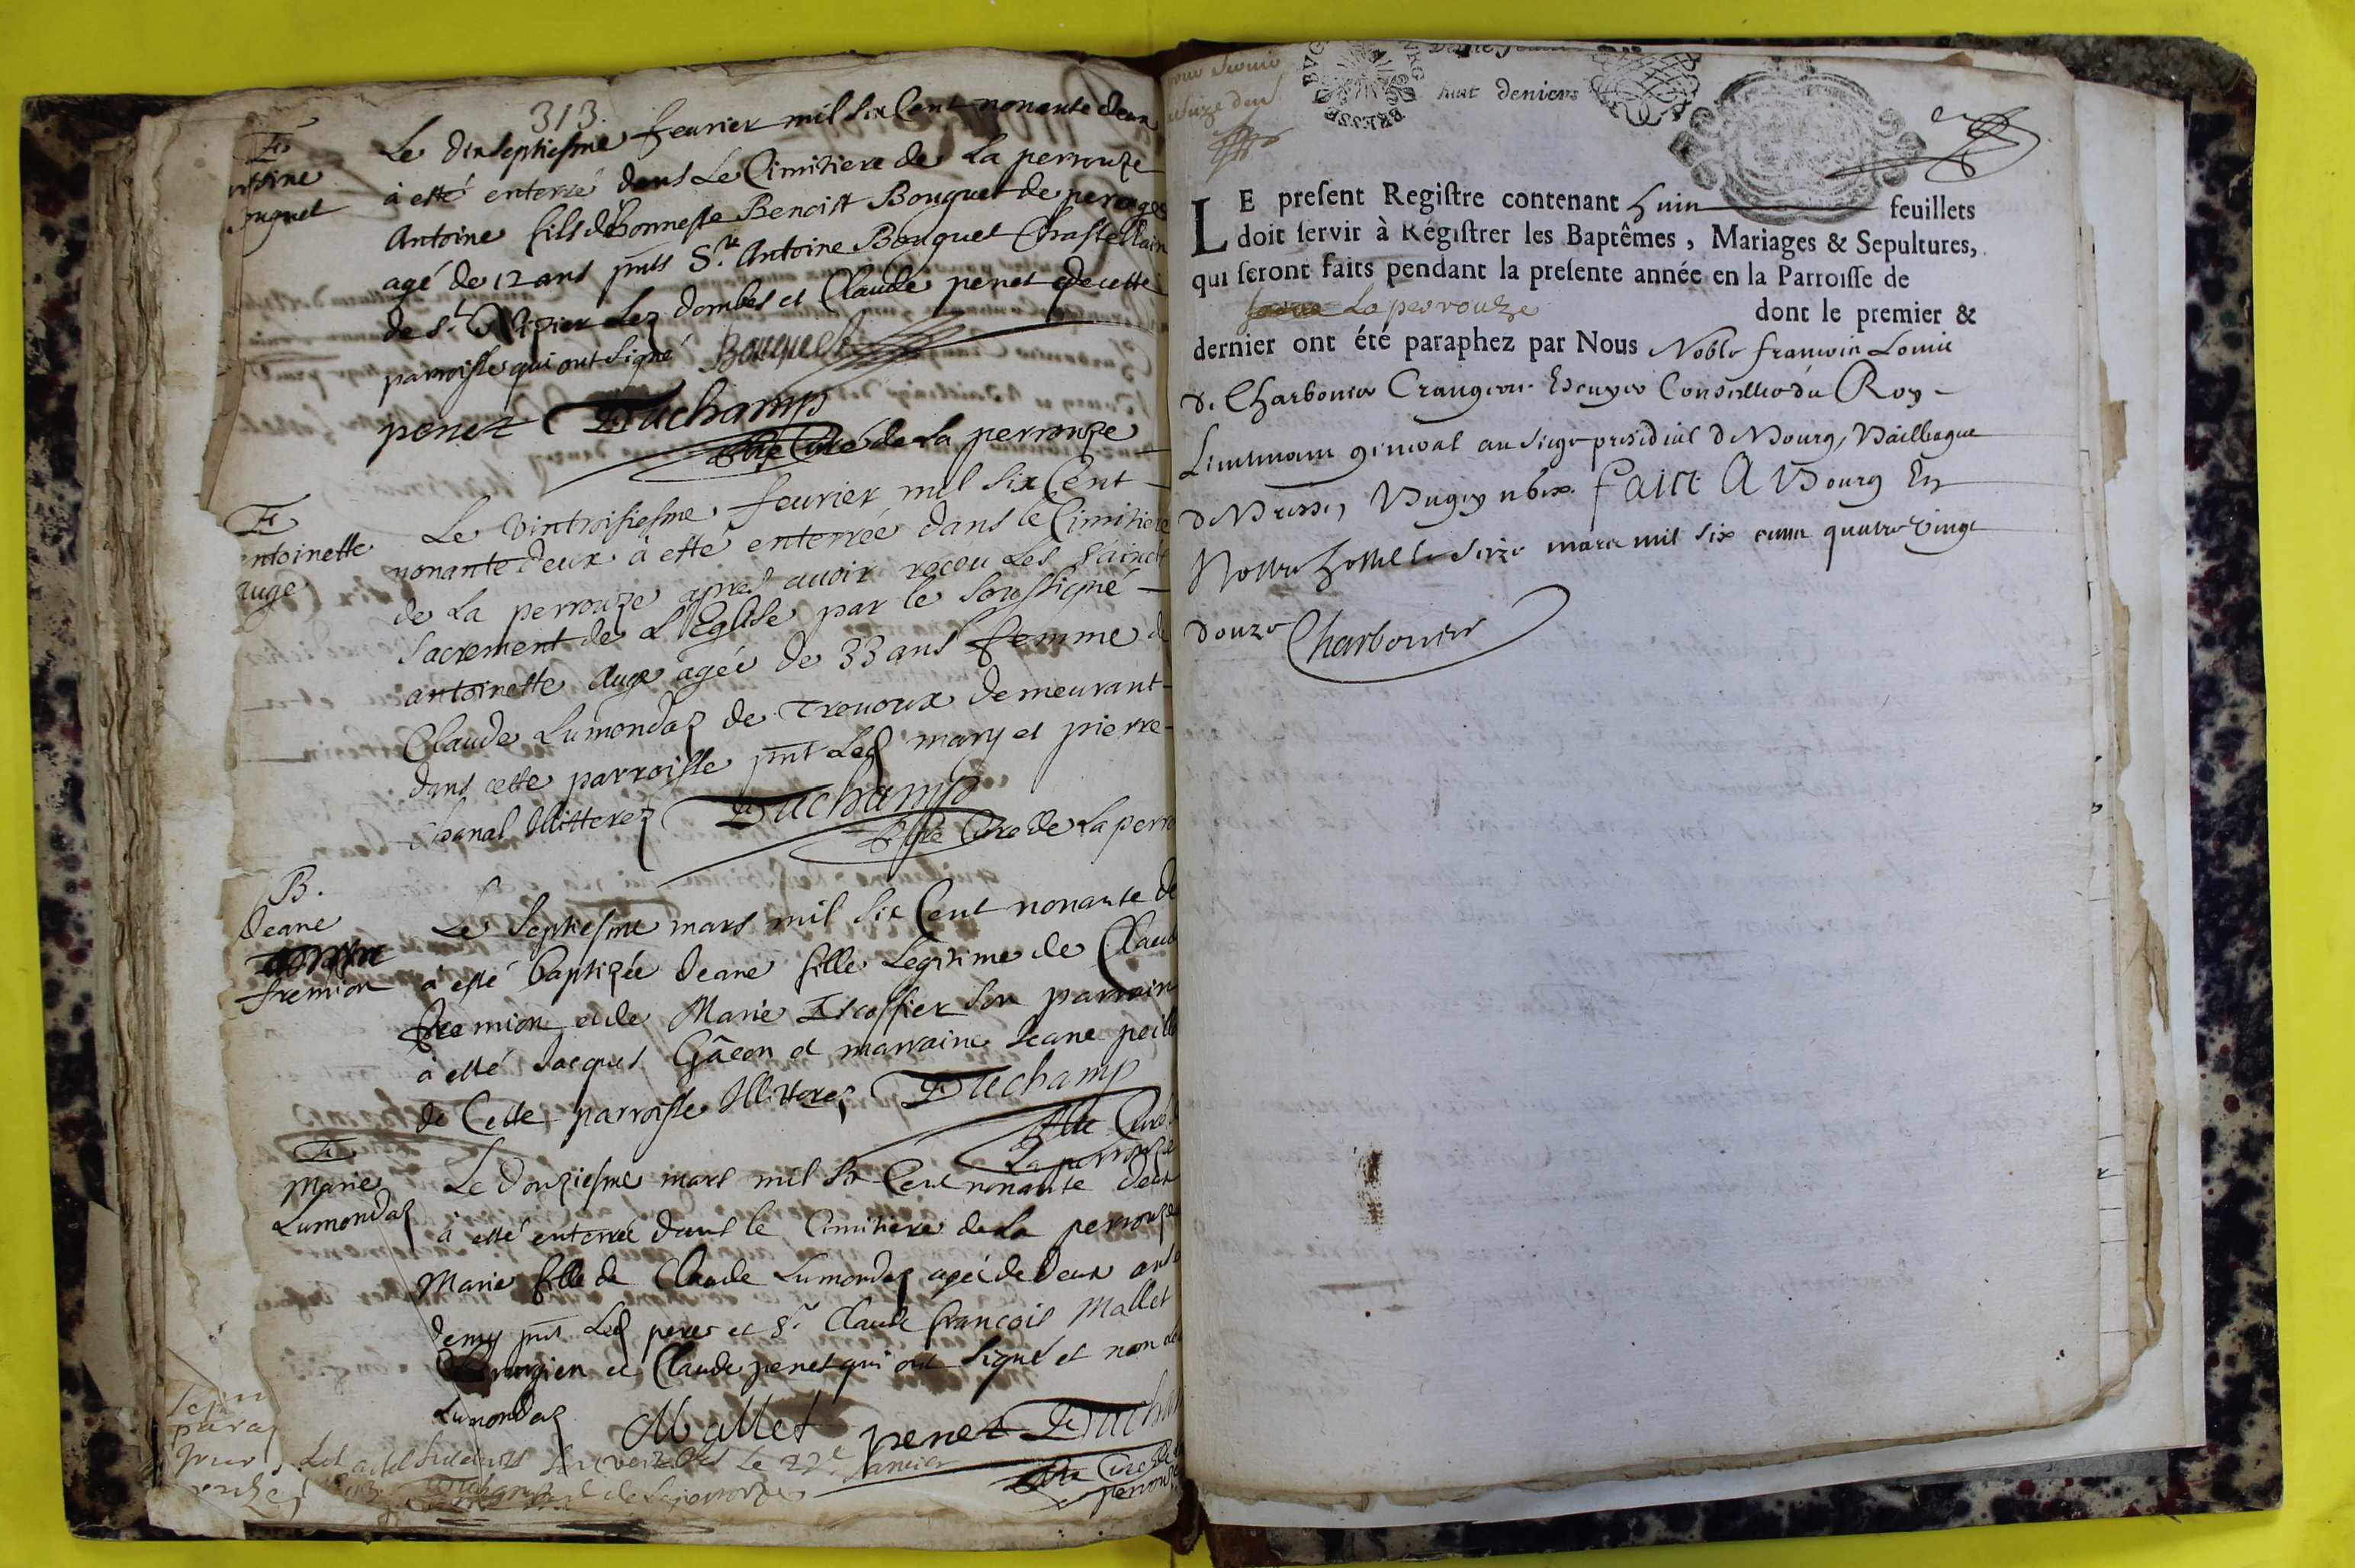 313.
Le dixseptiesme feurier mil six Cent nonante deux
à esté enterré dans Le Cimitiere de La perrouze
Antoine fils d'honneste Benoist Bouquet de peroges
agé de 12 ans pnts Sr. Antoine Bouquet Chastellain
de St. Nizier Lez dombes et Claude penet de cette
parroisse qui ont signé Bouquet
penet Duchamp
Ptre Curé de La perrouze
F
ntoinette
auge
Le vintroisiesme feurier mil six Cent
nonante deux à esté enterrée dans le Cimitiere
de La perrouze apres auoir receu Les Saincts
Sacrement de L'Eglise par le soussigné
antoinette Auge agée de 33 ans femme de
Claude Lumondaz de Treuoux demeurant
dans cette parroisse pnt Led mary et pierre
chanal Illitterez Duchamp
Ptre Cure de La perro
B.
Jeane
fremion
Le Septiesme mars mil six Cent nonante de
à esté baptizée Jeane fille Legitime de Claud
fremion et de Marie Escoffier son parrain
à esté Jacques Gâcon et marraine Jeane peill
de Cette parroisse Illitterez Duchamp
Ptre Curé
La perrouze
F
Marie
Lumondaz
Le douziesme mars mil six Cent nonante deux
à esté enterrée dans le Cimitiere de La perrouze
Marie fille de Claude Lumondaz agée de deux ans
demy pnt Led pere et Sr. Claude françois Mallet
Chirurgien et Claude penet qui ont signé et non led
Lumondaz Mallet penet Ducham
Ptre Cure de
perrouze
huit deniers
LE present Registre contenant huin feuillets
doit servir à Régistrer les Baptêmes, Mariages & Sepultures,
qui seront faits pendant la presente année en la Parroisse de
La perrouze dont le premier &
dernier ont été paraphez par Nous Noble francoin Louis
de Charbonier Crangeac Escuyer Conseillier du Roy
Lieutenant general au siege presidial de Bourg, Bailliage
de Bresse, Bugey Faict A Bourg En
Nostre hostel le seize mars mil six cent quatre vingt
douze Charbonier